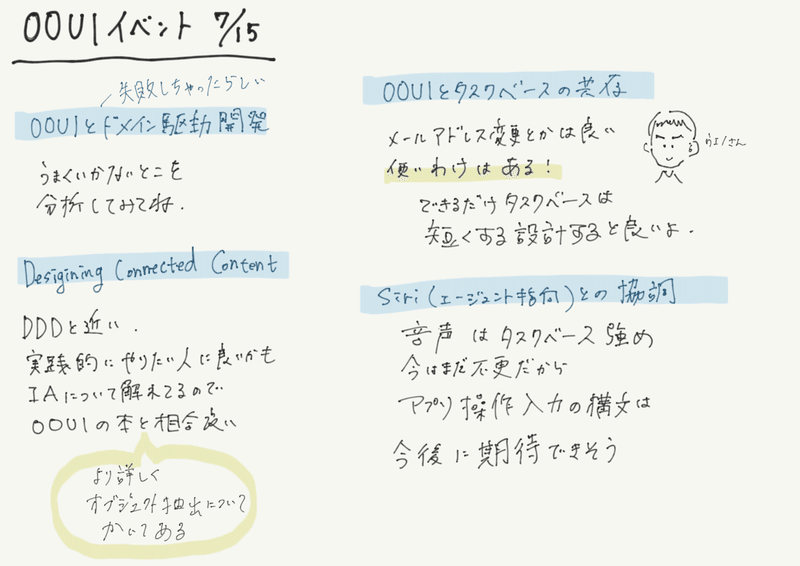 OOUIイベント 7/15
失敗しちゃったらしい
OOUIとドメイン駆動開発
うまくいかないとこを
分析してみてね.
Desigining Connected Content
DDDと近い.
実践的にやりたい人に良いかも
IAについて触れてるので
OOUIの本と相合良い
より詳しく
オブジェクト抽出について
かいてある
OOUIとタスクベースの共存
メールアドレス変更とかは良い
使いわけはある!
できるだけタスクベースは
短くする設計すると良いよ.
上野さん
Siri(エージェント指向)との協調
音声はタスクベース強め
今はまだ不便だから
アプリ操作入力の構文は
今後に期待できそう